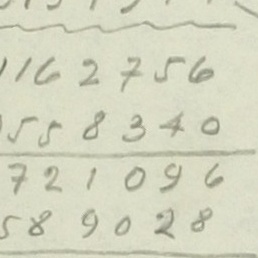 1162756
558340
721096
589028